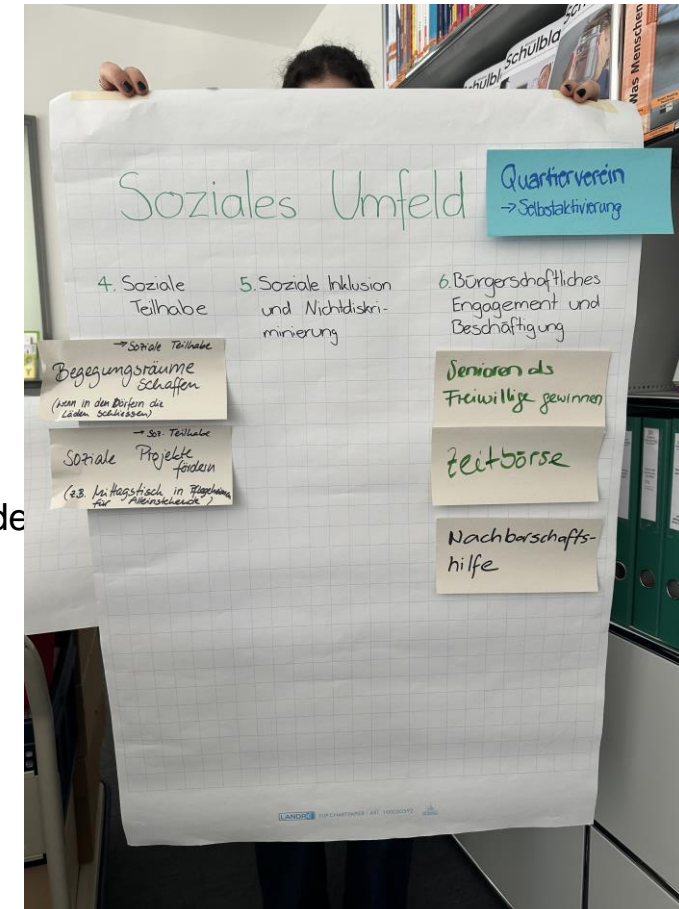 Soziales Umfeld
Quartierverein
→ Selbstaktivierung
4. Soziale
Teilhabe
5. Soziale Inklusion
und Nichtdiskri-
minierung
6. Bürgerschaftliches
Engagement und
Beschäftigung
→ Soziale Teilhabe
Begegungsräume
schaffen
(wenn in den Dörfern die
Läden schliessen)
→ Soz. Teilhabe
Soziale Projekte
fördern
(z.B. Mittagstisch in Pflegeheimen
für Alleinstehende)
Senioren als
Freiwillige gewinnen
Zeitbörse
Nachbarschafts-
hilfe
de
LANDRÉ
Schulbla
Was Menschen